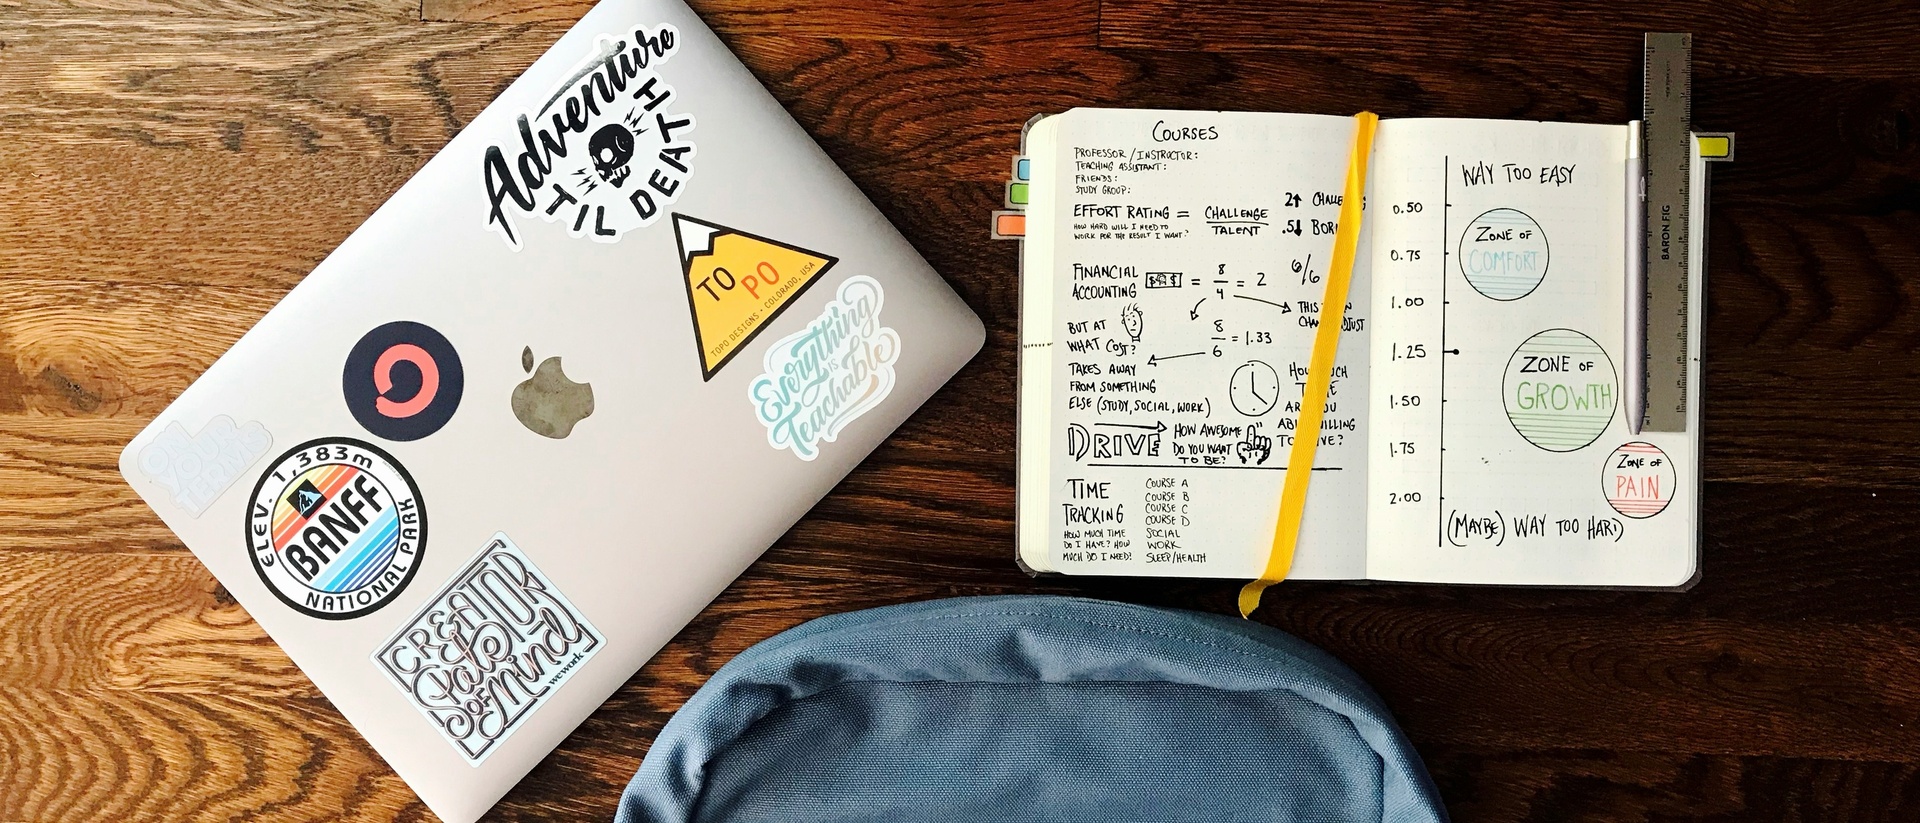 Adventure
'TIL DEATH
TO
PO
TOPO DESIGNS · COLORADO, USA
Everything
IS
Teachable
ON
YOUR
TEAM
ELEV. 1,383m
BANFF
NATIONAL PARK
CREATOR
State
OF Mind
wework
COURSES
PROFESSOR / INSTRUCTOR:
TEACHING ASSISTANT:
FRIENDS:
STUDY GROUP:
EFFORT RATING = CHALLENGE
TALENT
HOW HARD WILL I NEED TO
WORK FOR THE RESULT I WANT?
2↑
.5↓
FINANCIAL
ACCOUNTING $$ = 8
4 = 2
6/6
THIS
8
6 = 1.33
BUT AT
WHAT COST?
TAKES AWAY
FROM SOMETHING
ELSE (STUDY, SOCIAL, WORK)
DRIVE
HOW AWESOME
DO YOU WANT
TO BE?
TIME
TRACKING
HOW MUCH TIME
DO I HAVE? HOW
MUCH DO I NEED?
COURSE A
COURSE B
COURSE C
COURSE D
SOCIAL
WORK
SLEEP/HEALTH
WAY TOO EASY
0.50
ZONE OF
COMFORT
0.75
1.00
1.25
ZONE OF
GROWTH
1.50
1.75
ZONE OF
PAIN
2.00
(MAYBE) WAY TOO HARD
BARON FIG